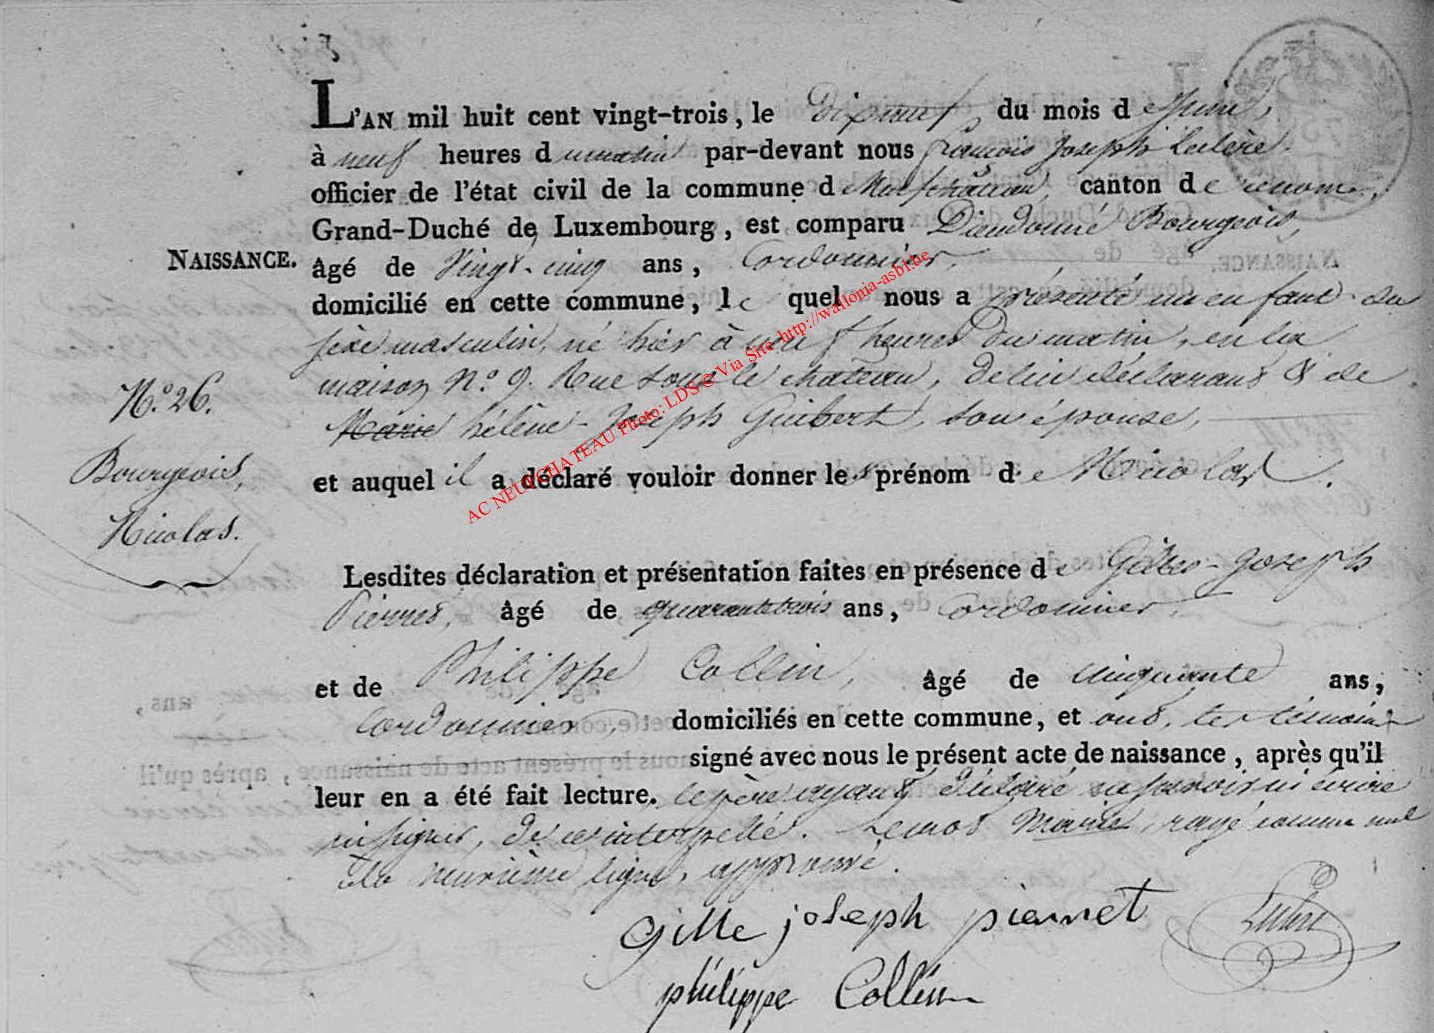 L'AN mil huit cent vingt-trois, le Dixneuf du mois de juin,
à neuf heures du matin par-devant nous françois Joseph Leclère
officier de l'état civil de la commune de Neufchâteau, canton de ce nom,
Grand-Duché de Luxembourg, est comparu Dieudonné Bourgeois,
NAISSANCE.
âgé de Vingt-cinq ans, Cordonnier,
domicilié en cette commune, lequel nous a présenté un enfant du
sexe masculin, né hier à neuf heures du matin, en la
maison N.° 9. Rue sous le chateau, de lui déclarant & de
N.° 26.
Marie hélène-Joseph Guibert, son épouse,
Bourgeois,
Nicolas.
et auquel il a déclaré vouloir donner le prénom de Nicolas.
Lesdites déclaration et présentation faites en présence de Gilles-Joseph
Pierret, âgé de quarante trois ans, Cordonnier,
et de Philippe Collin, âgé de cinquante ans,
Cordonnier, domiciliés en cette commune, et ont, les témoins
signé avec nous le présent acte de naissance, après qu'il
leur en a été fait lecture. le père ayant déclaré ne savoir ni écrire
ni signer, de ce interpellé. Le mot Marie, rayé comme nul
à la neuvième ligne, approuvé.
gille joseph pierret
philippe Collin
AC NEUFCHATEAU Photo: LDS © Via Site http://wallonia-asbl.be